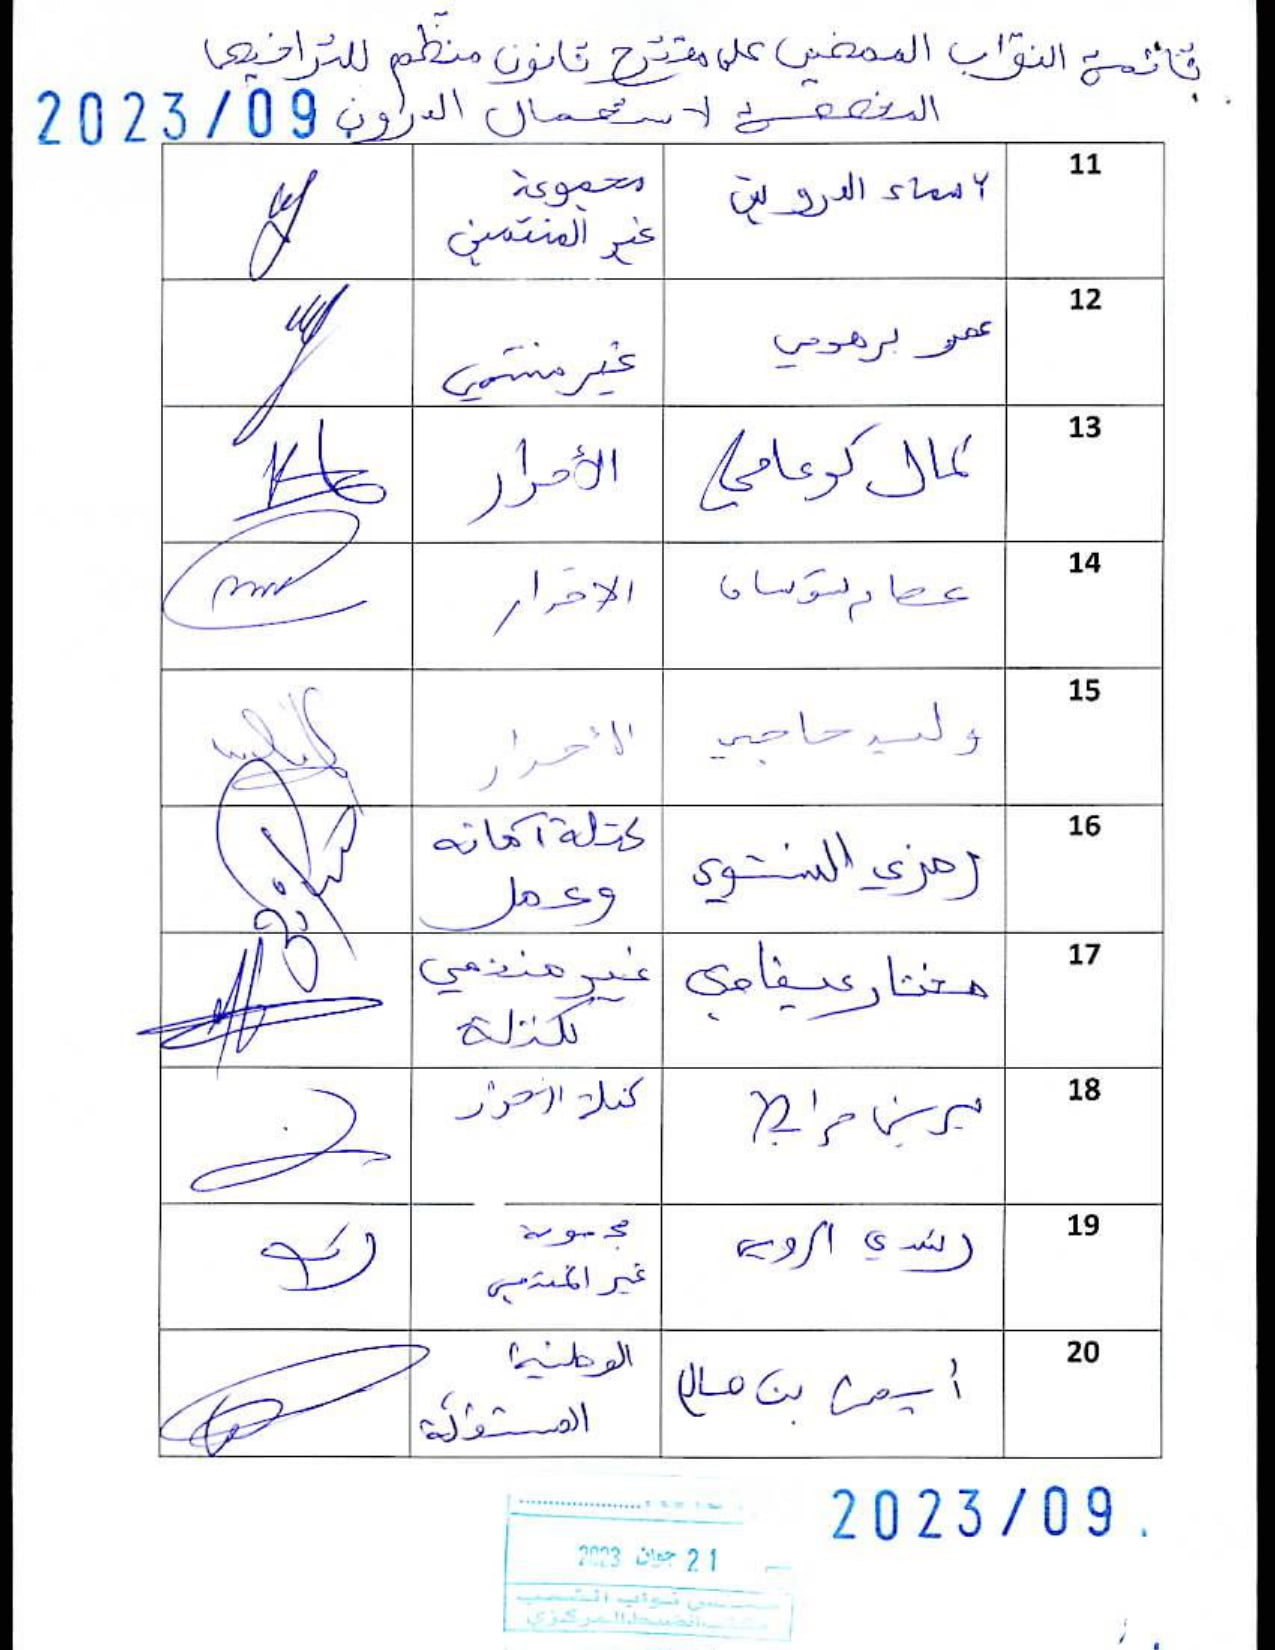 قائمة النوّاب الممضين على مقترح قانون منظّم للتراخيص
لاستعمال الدرون 2023/09
11
أسماء الدرويش
مجموعة
غير المنتمين
12
عمر برهومي
غير منتمي
13
كمال كرعامي
الأحرار
14
عصام شوشان
الأحرار
15
وليد حاجي
الأحرار
16
رمزي الشتوي
كتلة أمانة
وعمل
17
مختار عيفاوي
غير منتمي
لكتلة
18
سيرين مرابط
كتلة الأحرار
19
رشدي الرويسي
مجموعة
غير المنتمين
20
أيمن بن صالح
الوطنية
المستقلة
2023/09
21 جوان 2023
مجلس نواب الشعب
مكتب الضبط المركزي